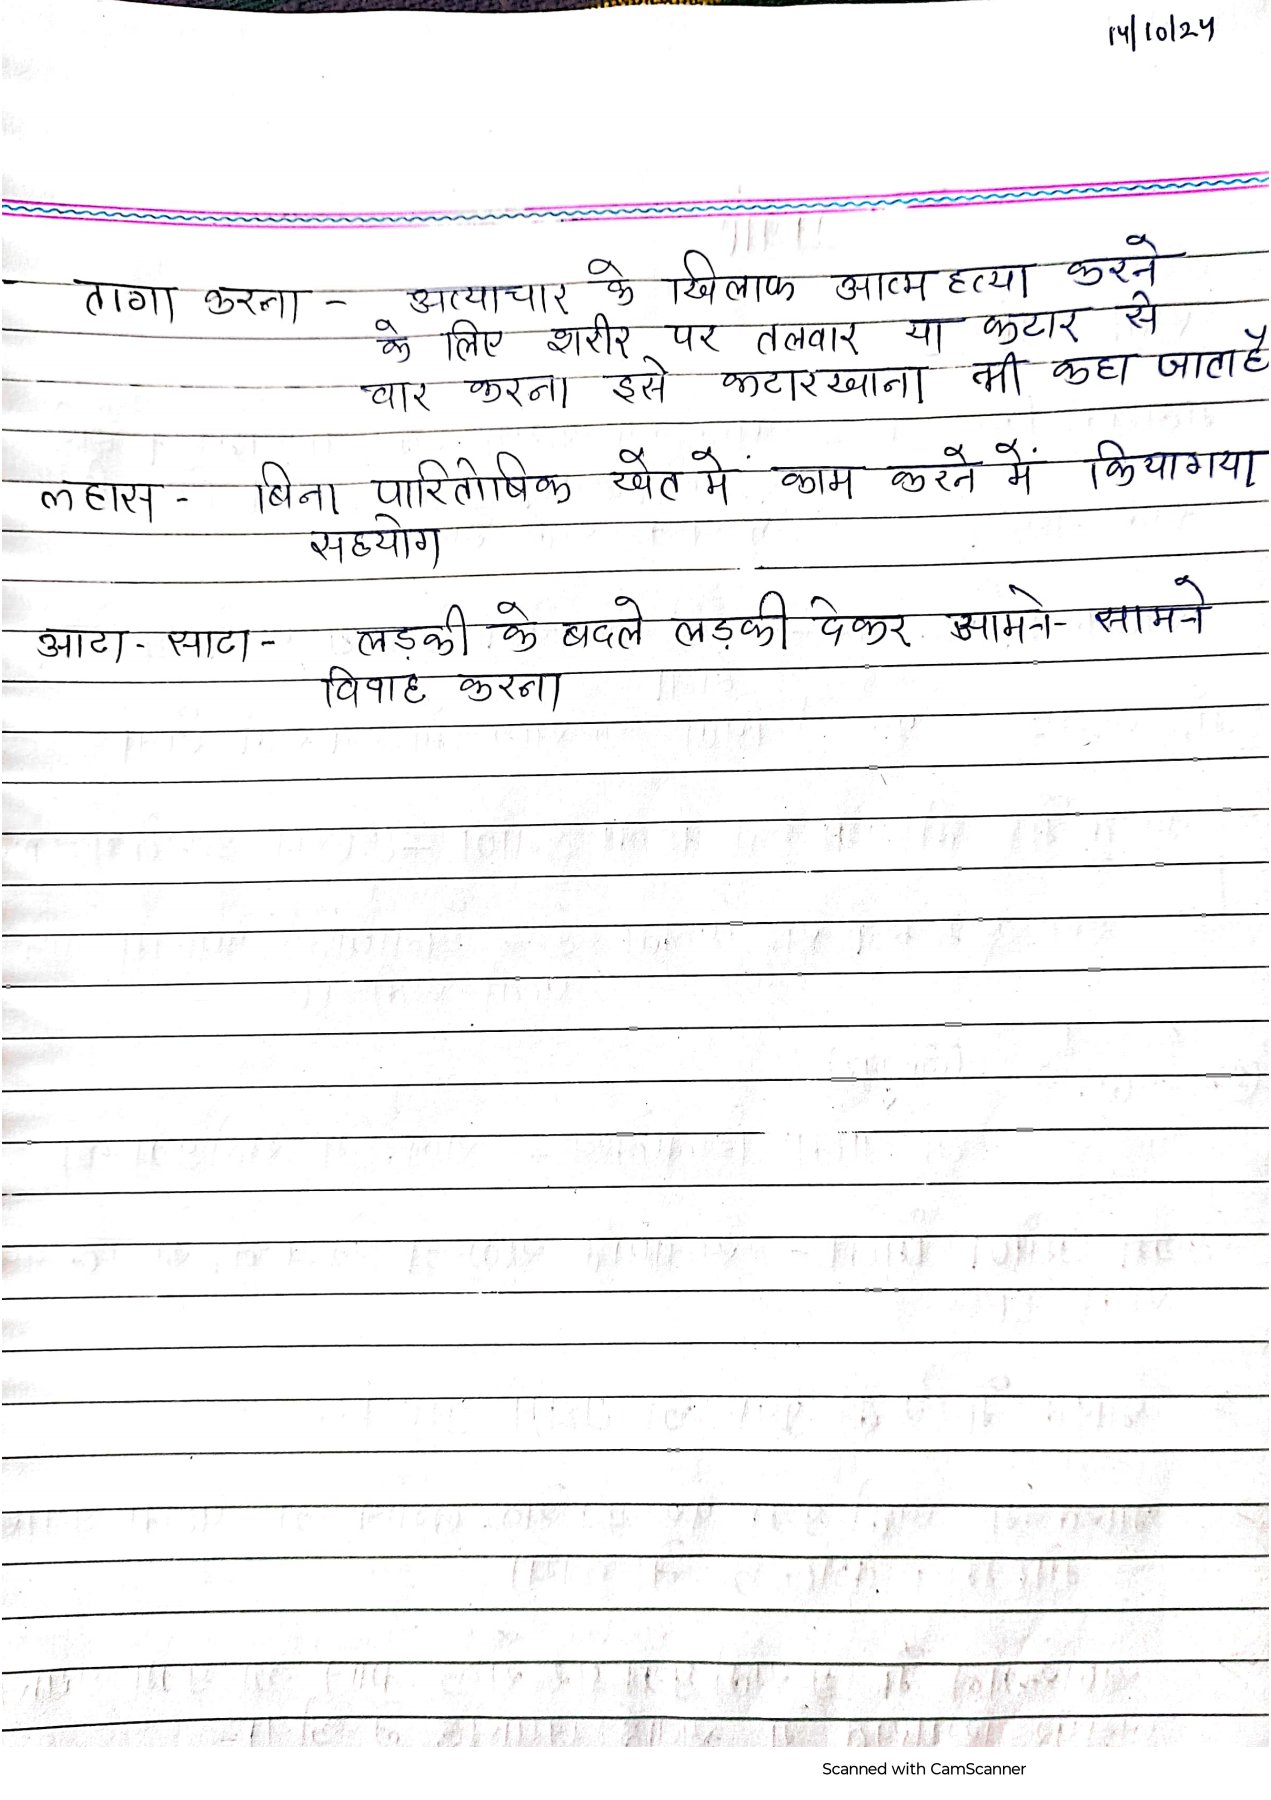 14/10/24
तागा करना - अत्याचार के खिलाफ आत्म हत्या करने
के लिए शरीर पर तलवार या कटार से
वार करना इसे कटारखाना भी कहा जाता है
लहास - बिना पारितोषिक खेत में काम करने में किया गया
सहयोग
आटा - साटा - लड़की के बदले लड़की देकर आमने - सामने
विवाह करना
Scanned with CamScanner